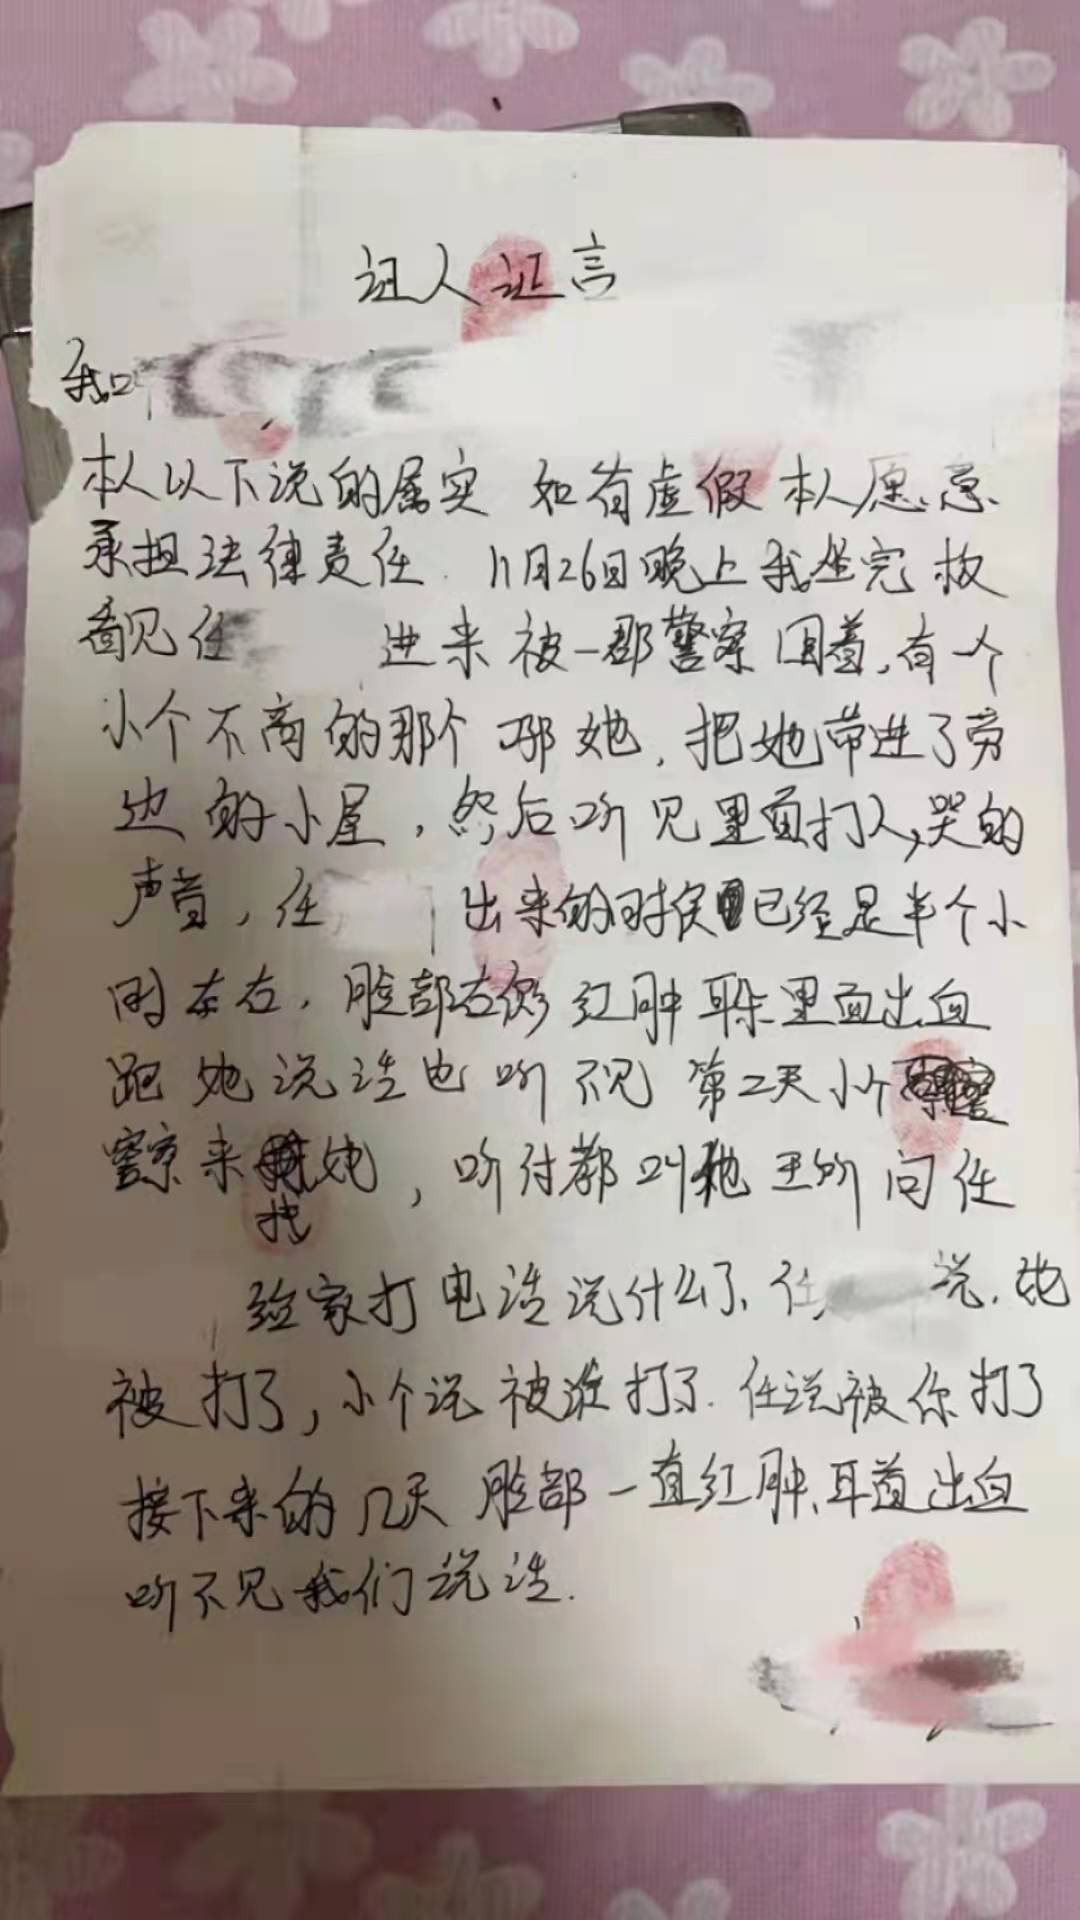 证人证言
我叫
本人以下说的属实 如有虚假 本人愿意
承担法律责任. 11月26日晚上我坐完板
看见任 进来被一郡警察围着,有一个
小个不高的那个 那她,把她带进了旁
边的小屋,然后听见里面打人,哭的
声音,任 出来的时候已经是半个小
时左右,脸部右侧红肿耳朵里面出血
跟她说话也听不见 第二天小个
警察来找她,听付都叫他王所问任
给家打电话说什么了、任 说.她
被打了,小个说被谁打了.任说被你打了
接下来的几天脸部一直红肿、耳道出血
听不见我们说话.